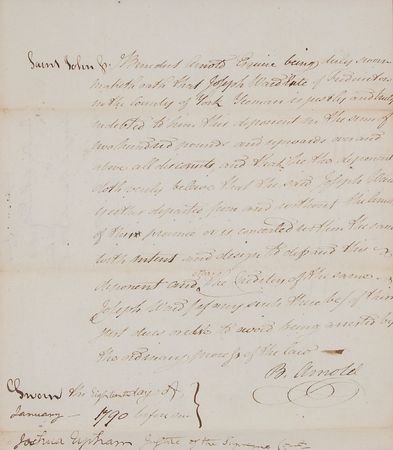 Saint John ss. Benedict Arnold Esquire being duly sworn
maketh oath that Joseph Ward late of Fredericton
in the County of York Yeoman is justly and truly
indebted to him this deponent in the sum of
two hundred pounds and upwards over and
above all discounts, and that he the deponent
doth verily believe that the said Joseph Ward
is either departed from and without the limits
of this province or is concealed within the same
with intent and design to defraud this
deponent and other the Creditors of the same
Joseph Ward (if any such there be) of their
just dues or to avoid being arrested by
the ordinary process of the law
B. Arnold
Sworn the Eighteenth day of
January 1790 before me
Joshua Upham Justice of the Supreme Court